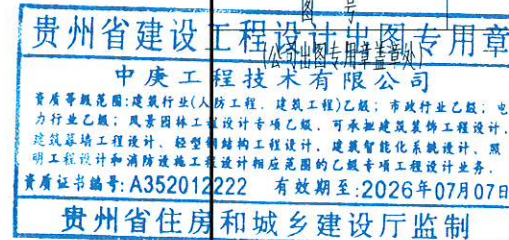 图 号
贵州省建设工程设计出图专用章
(公司出图专用章盖章处)
中庚工程技术有限公司
资质等级范围:建筑行业(人防工程、建筑工程)乙级;市政行业乙级;电
力行业乙级;风景园林工程设计专项乙级,可承担建筑装饰工程设计,
建筑幕墙工程设计、轻型钢结构工程设计、建筑智能化系统设计、照
明工程设计和消防设施工程设计相应范围的乙级专项工程设计业务。
资质证书编号:A352012222 有效期至:2026年07月07日
贵州省住房和城乡建设厅监制